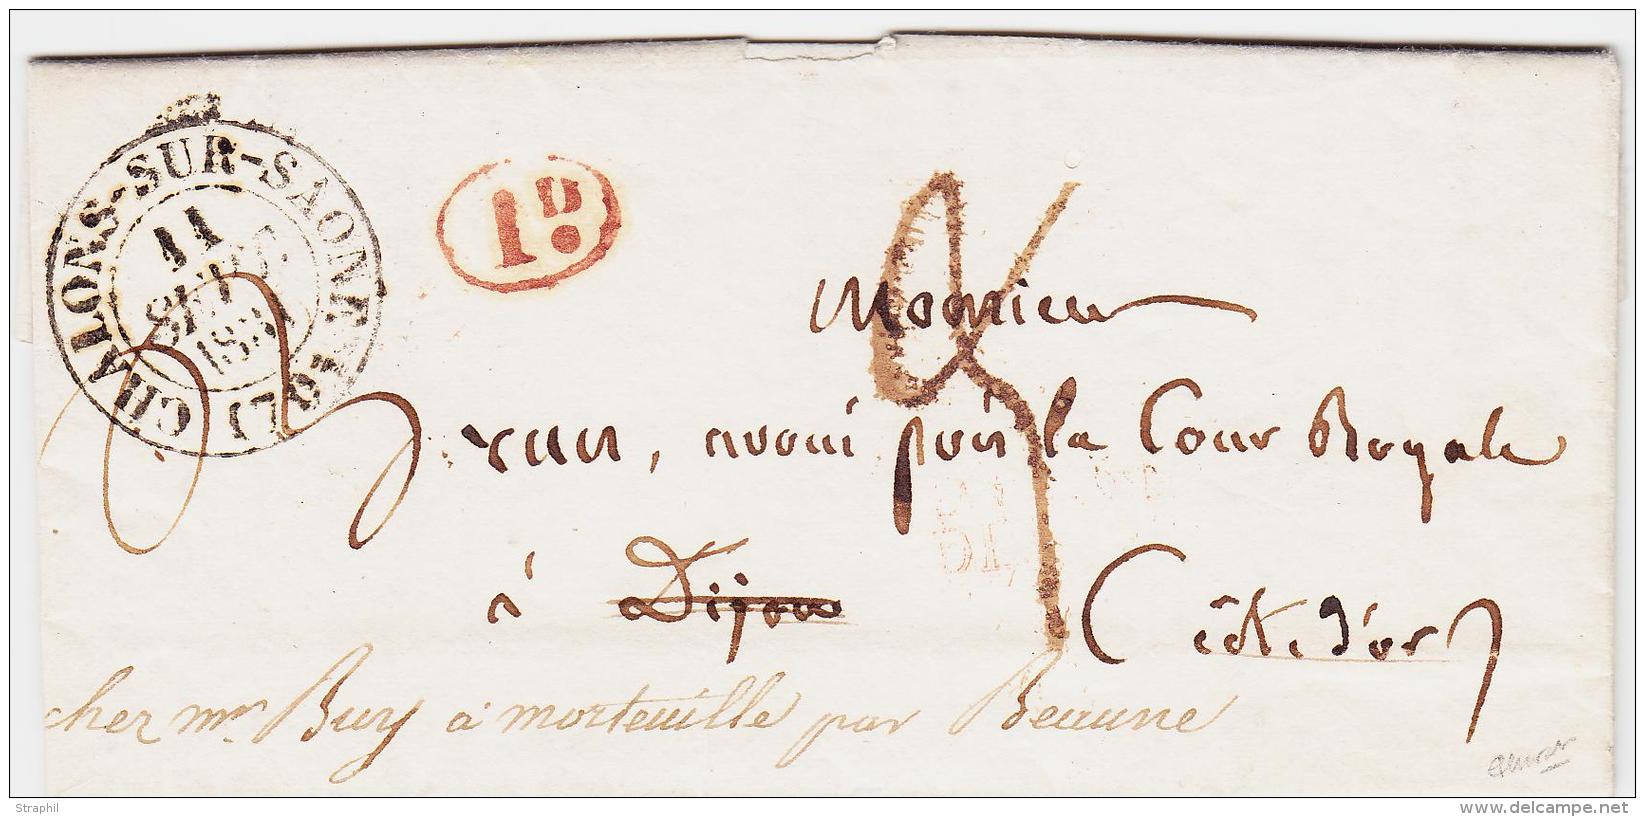 CHALONS-SUR-SAONE (70)
11
SEPT
183
1D.
Monsieur
avoué près la Cour Royale
à Dijon (Côte d'or)
chez mr Bury à morteuille par Beaune
Straphil
www.delcampe.net